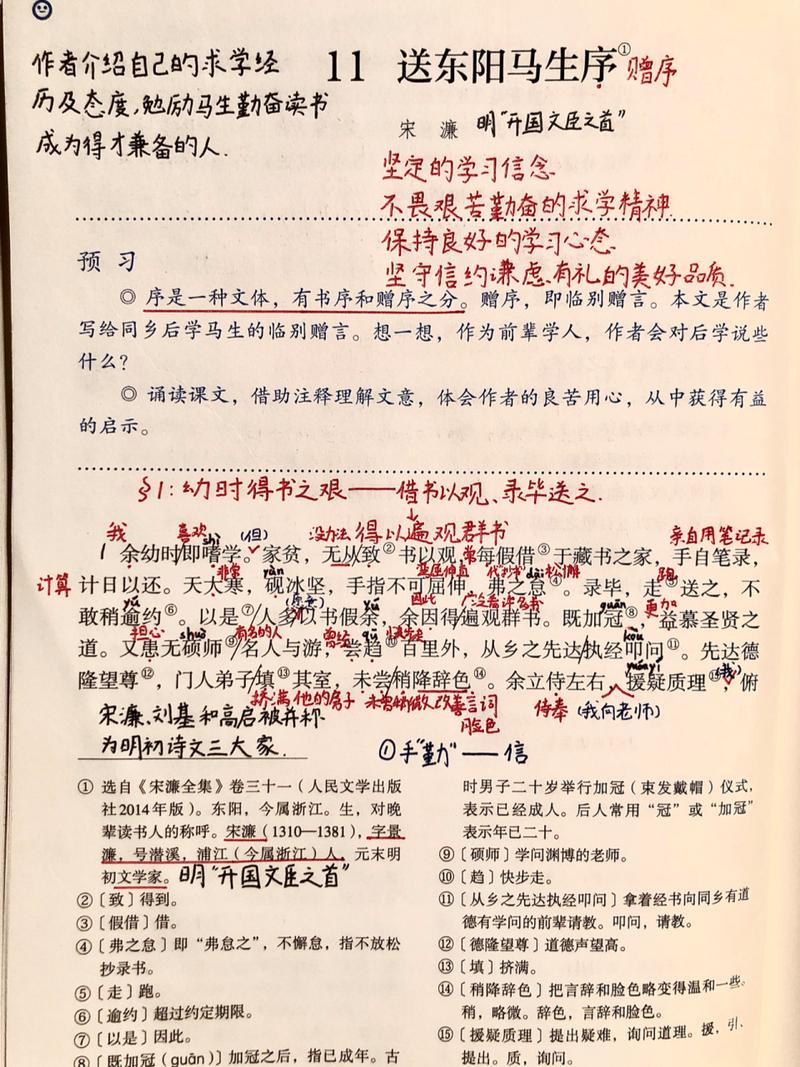 作者介绍自己的求学经
历及态度,勉励马生勤奋读书
成为得才兼备的人.
11 送东阳马生序① 赠序
宋 濂 明"开国文臣之首"
坚定的学习信念
不畏艰苦勤奋的求学精神
保持良好的学习心态
坚守信约谦虚有礼的美好品质.
预 习
◎ 序是一种文体，有书序和赠序之分。赠序，即临别赠言。本文是作者
写给同乡后学马生的临别赠言。想一想，作为前辈学人，作者会对后学说些
什么？
◎ 诵读课文，借助注释理解文意，体会作者的良苦用心，从中获得有益
的启示。
§1:幼时得书之艰——借书以观、录毕送之.
我 喜欢 shì (但) 没办法 得以遍观群书 亲自用笔记录
1 余幼时即嗜学。家贫，无从致②书以观，常每假借③于藏书之家，手自笔录，
计算 非常 yàn 弯屈伸直 dài 松懈 跑
计日以还。天大寒，砚冰坚，手指不可屈伸，弗之怠④。录毕，走⑤送之，不
yú (愿意) yú 因此 广泛看许多书 guān 更加
敢稍逾约⑥。以是⑦人多以书假余，余因得遍观群书。既加冠⑧，益慕圣贤之
担心 shuò 有名的人 曾经 qū kòu
道。又患无硕师⑨名人与游，尝趋⑩百里外，从乡之先达执经叩问⑪。先达德
yuán yì (我)
隆望尊⑫，门人弟子填⑬其室，未尝稍降辞色⑭。余立侍左右，援疑质理⑮，俯
挤满他的房子 改善言词
脸色
侍奉 (我向老师)
宋濂、刘基和高启被并称
为明初诗文三大家.
①手"勤"——信
① 选自《宋濂全集》卷三十一（人民文学出版
社2014年版）。东阳，今属浙江。生，对晚
辈读书人的称呼。宋濂（1310—1381），字景
濂，号潜溪，浦江（今属浙江）人，元末明
初文学家。 明"开国文臣之首"
②〔致〕得到。
③〔假借〕借。
④〔弗之怠〕即“弗怠之”，不懈怠，指不放松
抄录书。
⑤〔走〕跑。
⑥〔逾约〕超过约定期限。
⑦〔以是〕因此。
⑧〔既加冠（guān）〕加冠之后，指已成年。古
时男子二十岁举行加冠（束发戴帽）仪式，
表示已经成人。后人常用“冠”或“加冠”
表示年已二十。
⑨〔硕师〕学问渊博的老师。
⑩〔趋〕快步走。
⑪〔从乡之先达执经叩问〕拿着经书向同乡有道
德有学问的前辈请教。叩问，请教。
⑫〔德隆望尊〕道德声望高。
⑬〔填〕挤满。
⑭〔稍降辞色〕把言辞和脸色略变得温和一些。
稍，略微。辞色，言辞和脸色。
⑮〔援疑质理〕提出疑难，询问道理。援，引、
提出。质，询问。